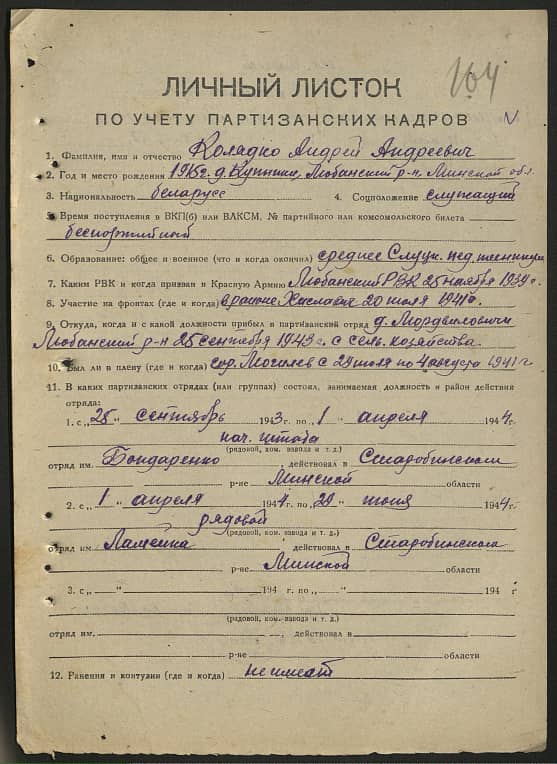 164
ЛИЧНЫЙ ЛИСТОК
ПО УЧЕТУ ПАРТИЗАНСКИХ КАДРОВ
1. Фамилия, имя и отчество Коладко Андрей Андреевич
2. Год и место рождения 1915г. д. Любанский р-н. Минской обл.
3. Национальность беларусс 4. Соцположение служащий
5. Время поступления в ВКП(б) или ВЛКСМ, № партийного или комсомольского билета
беспартийный
6. Образование: общее и военное (что и когда окончил) среднее Слуцк. пед. техникум
7. Каким РВК и когда призван в Красную Армию Любанский РВК 25 ноября 1939г.
8. Участие на фронтах (где и когда) в районе Хиславич 20 июля 1941г.
9. Откуда, когда и с какой должности прибыл в партизанский отряд д. Мордвиловичи
Любанский р-н 25 сентября 1943г. с сель. хозяйства.
10. Был ли в плену (где и когда) гор. Могилев с 29 июля по 4 августа 1941г
11. В каких партизанских отрядах (или группах) состоял, занимаемая должность и район действия
отряда:
1. с „25 " сентябрь 1943г. по „1 " апреля 1944г.
нач. штаба
(рядовой, ком. взвода и т. д.)
отряд им. Бондаренко действовал в Старобинском
р-не Минской области
2. с „1 " апреля 1944г. по „29 " июня 1944г.
рядовой
(рядовой, ком. взвода и т. д.)
отряд им. действовал в Старобинском
р-не Минской области
3. с „ " 194 г. по „ " 194 г
(рядовой, ком. взвода и т. д.)
отряд им. , действовал в
р-не области
12. Ранения и контузии (где и когда) не имеет